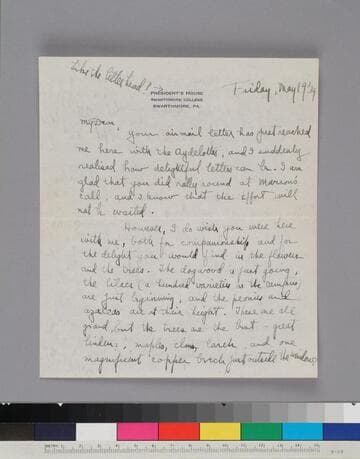 Like the letter head! →
PRESIDENT'S HOUSE
SWARTHMORE COLLEGE
SWARTHMORE, PA.
Friday, May 19
My Dear,
your airmail letter has just reached
me here with the Aydelottes, and I suddenly
realised how delightful letters can be. I am
glad that you did rally round at Marion's
call, and I know that the effort will
not be wasted.
However, I do wish you were here
with me, both for companionship and for
the delight you would find in the flowers
and the trees. The dogwood is just going,
the lilacs (a hundred varieties on the campus)
are just beginning, and the peonies and
azaleas are at their height. These are all
grand, but the trees are the best - great
lindens, maples, elms, larch, and one
magnificent copper birch just outside the window